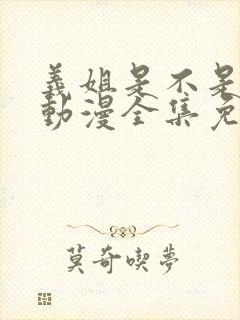 義姐是不是
動漫全集免
莫奇喫夢